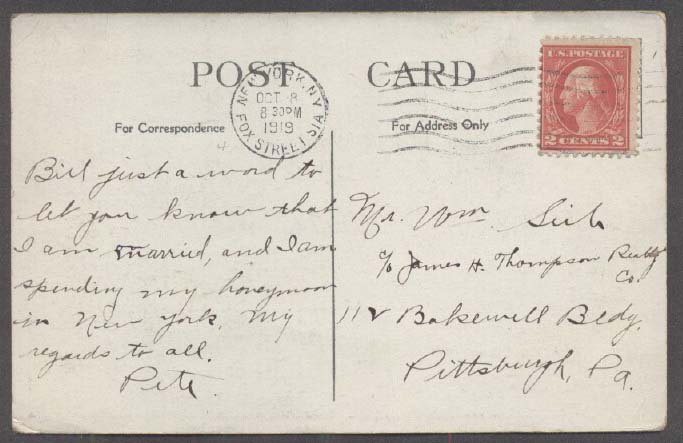 POST CARD
NEW YORK, N.Y.
OCT 8
8 30PM
1919
FOX STREET STA.
U.S. POSTAGE
2 CENTS 2
For Correspondence
For Address Only
4
Bill just a word to
let you know that
I am married, and I am
spending my honeymoon
in New York, My
regards to all.
Pete.
Mr. Wm.
c/o James H. Thompson Realty
Co.
112 Bakewell Bldg,
Pittsburgh, Pa.